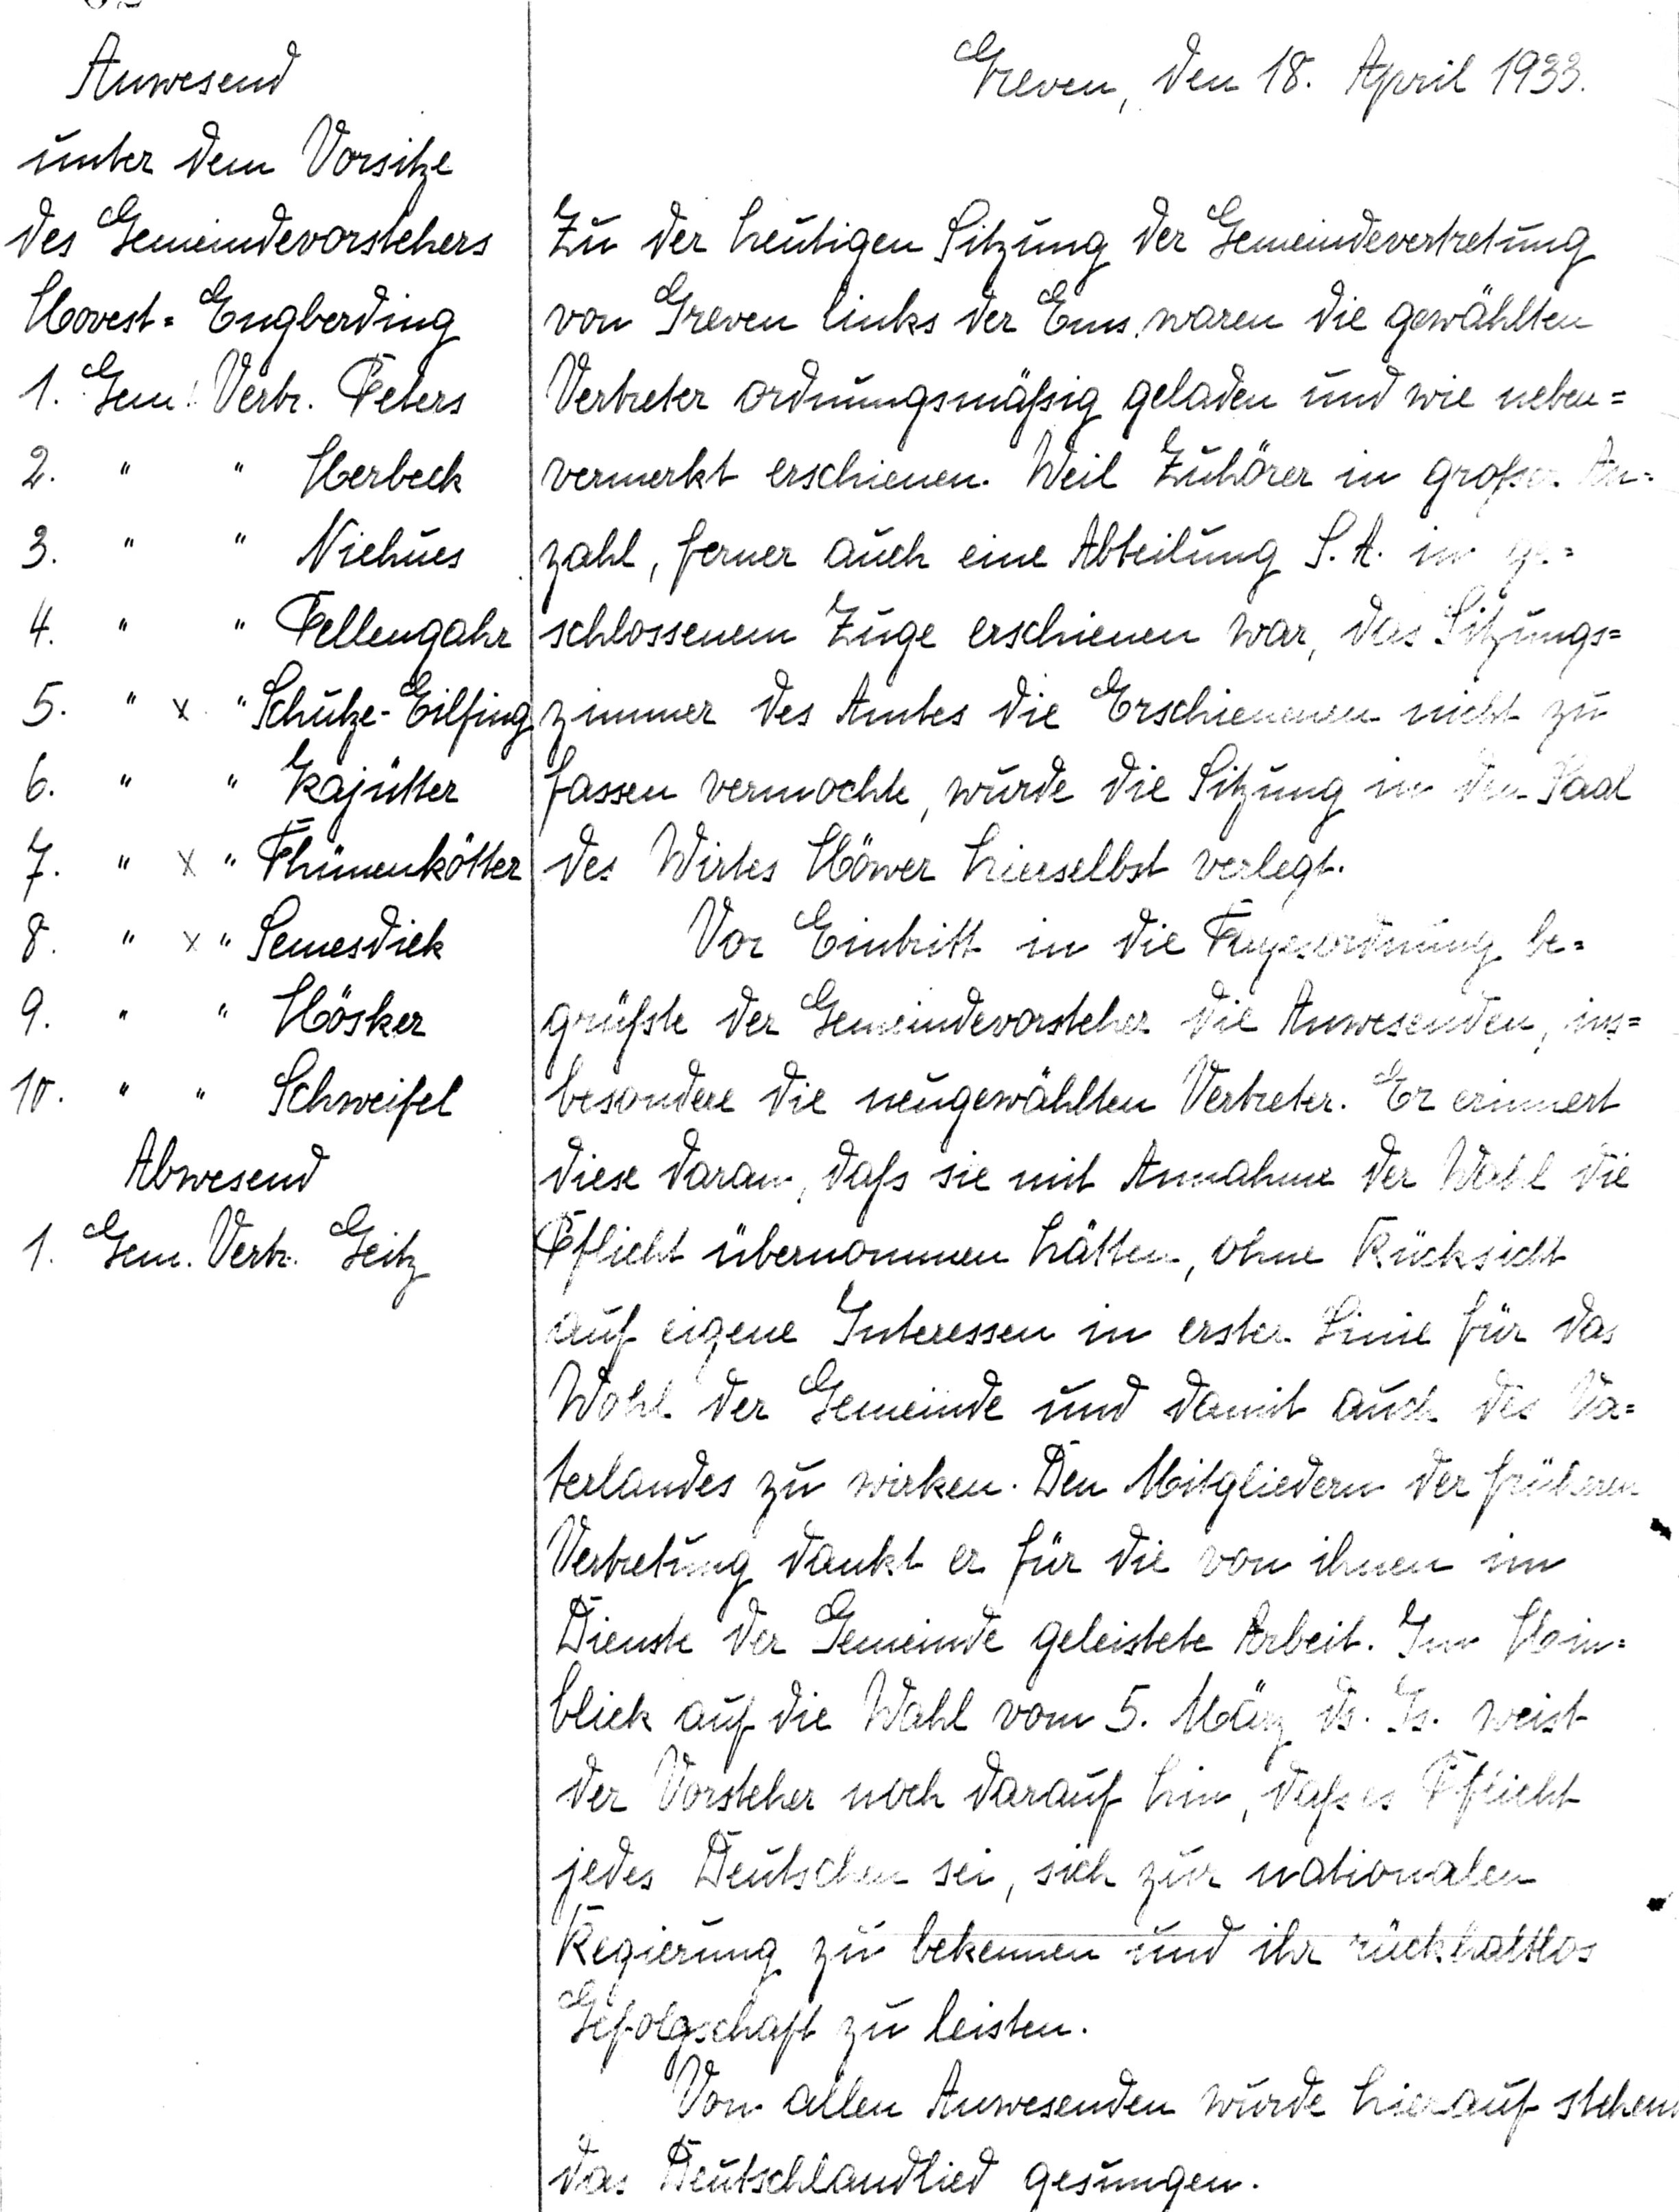 Anwesend
unter dem Vorsitze
des Gemeindevorstehers
Hovest = Engberding
1. Gem. Vertr. Peters
2. " " Herbeck
3. " " Niehues
4. " " Pellengahr
5. " x " Schulze-Eilfing
6. " " Kajütter
7. " x " Thünenkötter
8. " x " Semesdiek
9. " " Hösker
10. " " Schweifel
Abwesend
1. Gem. Vertr. Geitz
Greven, den 18. April 1933.
Zu der heutigen Sitzung der Gemeindevertretung
von Greven links der Ems waren die gewählten
Vertreter ordnungsmäßig geladen und wie neben=
vermerkt erschienen. Weil Zuhörer in großer An=
zahl, ferner auch eine Abteilung S. A. in ge=
schlossenem Zuge erschienen war, das Sitzungs=
zimmer des Amtes die Erschienenen nicht zu
fassen vermochte, wurde die Sitzung in den Saal
des Wirtes Höwer hierselbst verlegt.
Vor Eintritt in die Tagesordnung be=
grüßte der Gemeindevorsteher die Anwesenden, ins=
besondere die neugewählten Vertreter. Er erinnert
diese daran, daß sie mit Annahme der Wahl die
Pflicht übernommen hätten, ohne Rücksicht
auf eigene Interessen in erster Linie für das
Wohl der Gemeinde und damit auch des Va=
terlandes zu wirken. Den Mitgliedern der früheren
Vertretung dankt er für die von ihnen im
Dienste der Gemeinde geleistete Arbeit. Im Hin=
blick auf die Wahl vom 5. März ds. Js. weist
der Vorsteher noch darauf hin, daß es Pflicht
jedes Deutschen sei, sich zur nationalen
Regierung zu bekennen und ihr rückhaltlos
Gefolgschaft zu leisten.
Von allen Anwesenden wurde hierauf stehend
das Deutschlandlied gesungen.